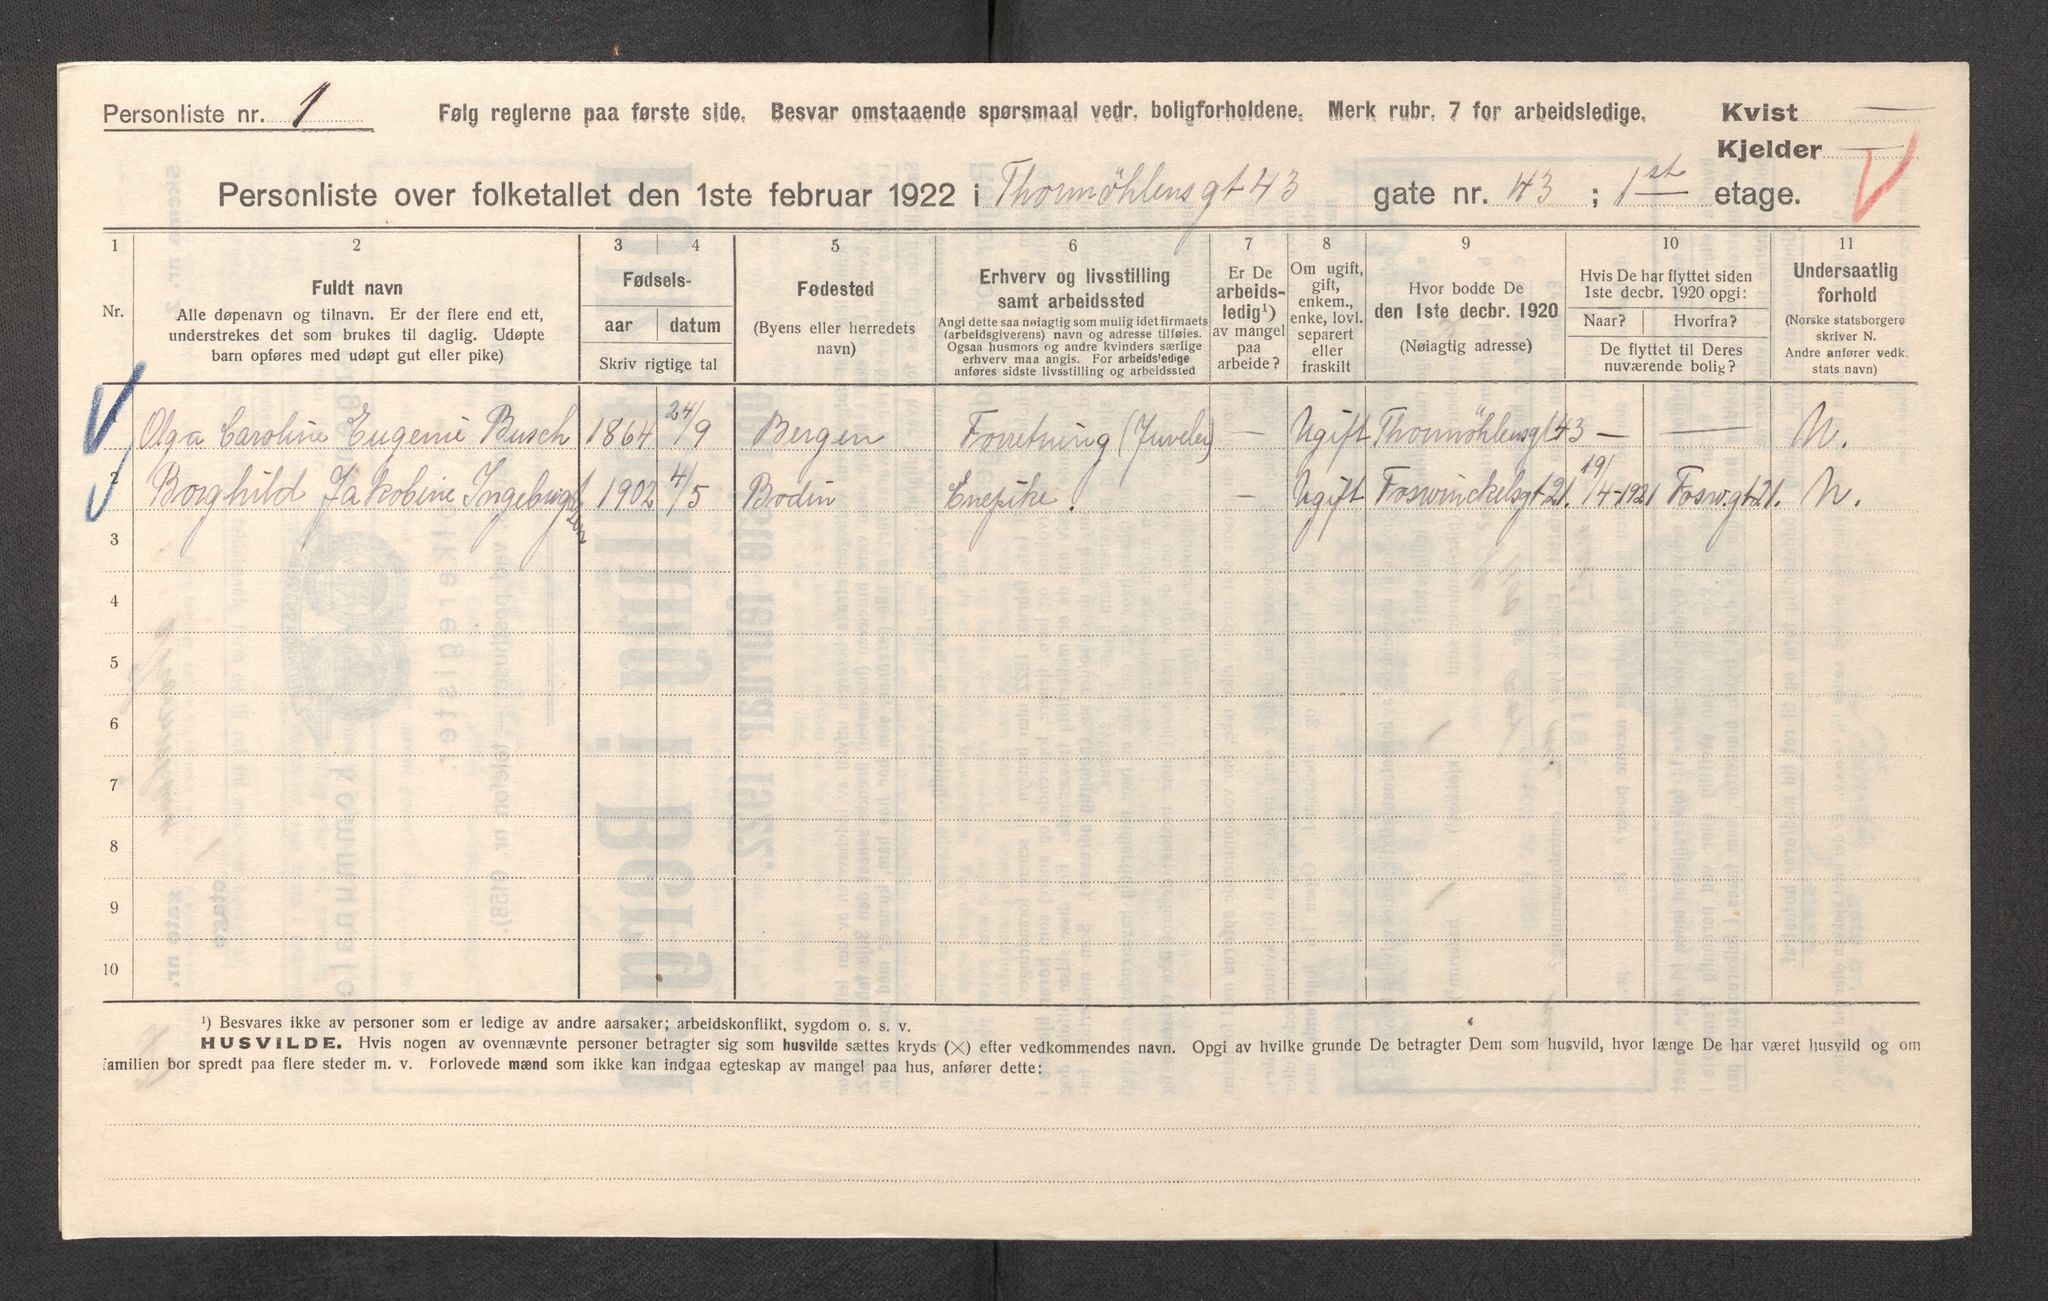 Personliste nr. 1 Følg reglerne paa første side. Besvar omstaaende spørsmaal vedr. boligforholdene. Merk rubr. 7 for arbeidsledige. Kvist —
Kjelder —
Personliste over folketallet den 1ste februar 1922 i Thormøhlensgt 43 gate nr. 43 ; 1st etage.
1 2 3 4 5 6 7 8 9 10 11
Nr.
Fuldt navn
Alle døpenavn og tilnavn. Er der flere end ett,
understrekes det som brukes til daglig. Udøpte
barn opføres med udøpt gut eller pike)
Fødsels-
aar datum
Skriv rigtige tal
Fødested
(Byens eller herredets
navn)
Erhverv og livsstilling
samt arbeidssted
Angi dette saa nøiagtig som mulig idet firmaets
(arbeidsgiverens) navn og adresse tilføies.
Ogsaa husmors og andre kvinders særlige
erhverv maa angis. For arbeidsledige
anføres sidste livsstilling og arbeidssted
Er De
arbeids-
ledig¹)
av mangel
paa
arbeide?
Om ugift,
gift,
enkem.,
enke, lovl.
separert
eller
fraskilt
Hvor bodde De
den 1ste decbr. 1920
(Nøiagtig adresse)
Hvis De har flyttet siden
1ste decbr. 1920 opgi:
Naar? Hvorfra?
De flyttet til Deres
nuværende bolig?
Undersaatlig
forhold
(Norske statsborgere
skriver N.
Andre anfører vedk.
stats navn)
Olga Caroline Eugenie Busch 1864 24/9 Bergen Forretning (Juveler) — Ugift Thormöhlensgt 43 — — N.
2 Borghild Jakobine Ingebrigtsen 1902 4/5 Bodin Enepike. — Ugift Foswinckelsgt 21. 19/4-1921 Fosw.gt 21. N.
3
4
5
6
7
8
9
10
¹) Besvares ikke av personer som er ledige av andre aarsaker; arbeidskonflikt, sygdom o. s. v.
HUSVILDE. Hvis nogen av ovennævnte personer betragter sig som husvilde sættes kryds (×) efter vedkommendes navn. Opgi av hvilke grunde De betragter Dem som husvild, hvor længe De har været husvild og om
familien bor spredt paa flere steder m. v. Forlovede mænd som ikke kan indgaa egteskap av mangel paa hus, anfører dette: